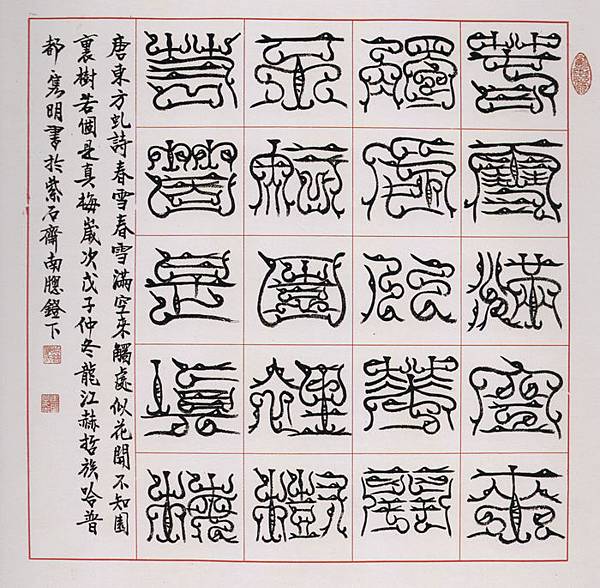 春雪滿空來
觸處似花開
不知園裏樹
若個是真梅
唐東方虬詩春雪春雪滿空來觸處似花開不知園
裏樹若個是真梅歲次戊子仲冬龍江赫哲族哈普
都隽明書於紫石齋南牕鐙下